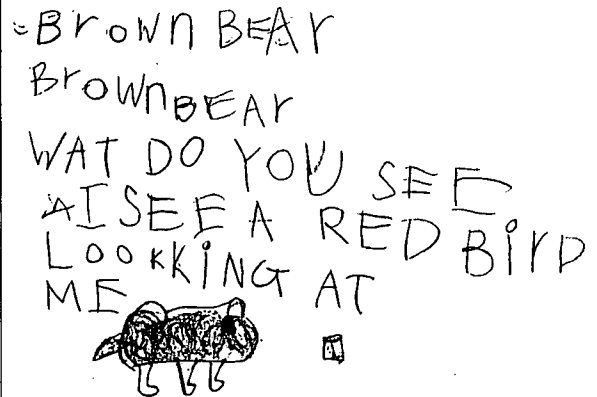 BrowN BEAr
BrowNBEAr
WAT DO YOU SEE
AISEE A RED BirD
LOOKKiNG AT
ME